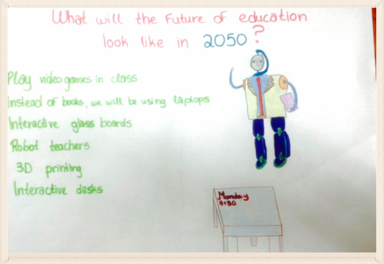 What will the Future of education
look like in 2050?
Play video games in class
instead of books, we will be using laptops
Interactive glass boards
Robot teachers
3D printing
Interactive desks
Monday